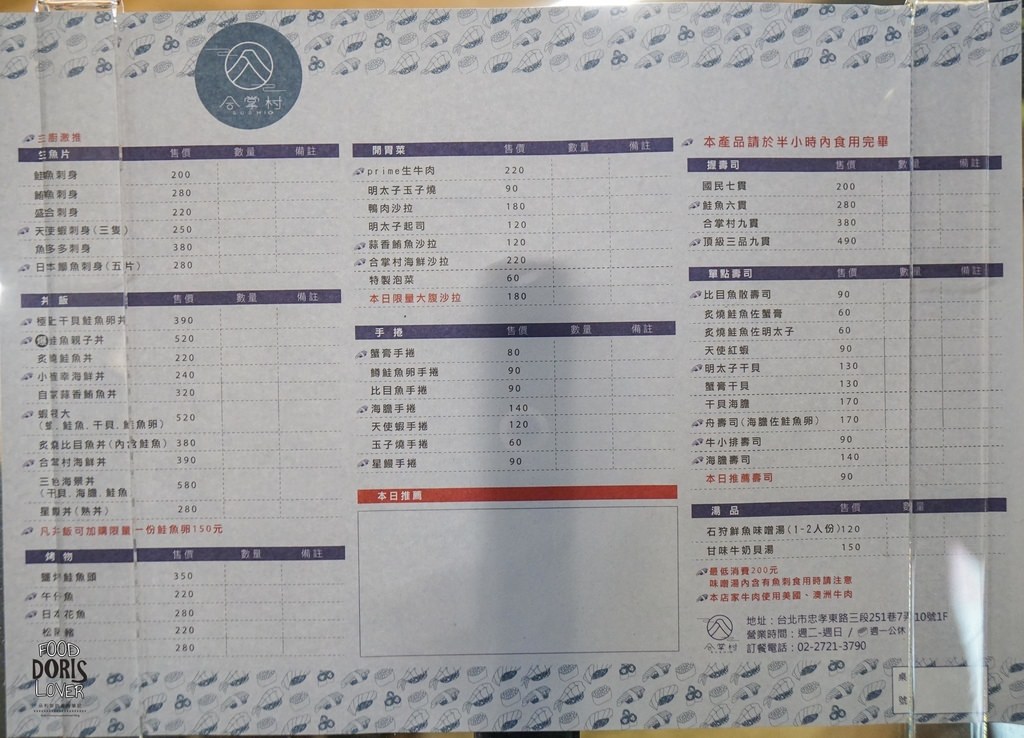 合掌村
SUSHIO
主廚激推
生魚片 售價 數量 備註
鮭魚刺身 200
鮪魚刺身 280
盛合刺身 220
天使蝦刺身(三隻) 250
魚多多刺身 380
日本鰤魚刺身(五片) 280
丼飯 售價 數量 備註
極上干貝鮭魚卵丼 390
鮭魚親子丼 520
炙燒鮭魚丼 220
小確幸海鮮丼 240
自家蒜香鮪魚丼 320
蝦很大 520
鮭魚.干貝.鮭魚卵)
炙燒比目魚丼(內含鮭魚) 380
合掌村海鮮丼 390
三色海景丼 580
(干貝.海膽.鮭魚
星鰻丼(熟丼) 280
凡丼飯可加購限量一份鮭魚卵150元
烤物 售價 數量 備註
鹽烤鮭魚頭 350
午仔魚 220
日本花魚 280
松阪豬 220
280
開胃菜 售價 數量 備註
prime生牛肉 220
明太子玉子燒 90
鴨肉沙拉 180
明太子起司 120
蒜香鮪魚沙拉 120
合掌村海鮮沙拉 220
特製泡菜 60
本日限量大腹沙拉 180
手捲 售價 數量 備註
蟹膏手捲 80
鱒鮭魚卵手捲 90
比目魚手捲 90
海膽手捲 140
天使蝦手捲 120
玉子燒手捲 60
星鰻手捲 90
本日推薦
本產品請於半小時內食用完畢
握壽司 售價 數量 備註
國民七貫 200
鮭魚六貫 280
合掌村九貫 380
頂級三品九貫 490
單點壽司 售價 數量 備註
比目魚散壽司 90
炙燒鮭魚佐蟹膏 60
炙燒鮭魚佐明太子 60
天使紅蝦 90
明太子干貝 130
蟹膏干貝 130
干貝海膽 170
舟壽司(海膽佐鮭魚卵) 170
牛小排壽司 90
海膽壽司 140
本日推薦壽司 90
湯品 售價 數量
石狩鮮魚味噌湯(1-2人份) 120
甘味牛奶貝湯 150
最低消費200元
味噌湯內含有魚刺食用時請注意
本店家牛肉使用美國、澳洲牛肉
合掌村
地址:台北市忠孝東路三段251巷7弄10號1F
營業時間:週二-週日 / 週一公休
訂餐電話:02-2721-3790
桌號
FOOD
DORIS
LOVER